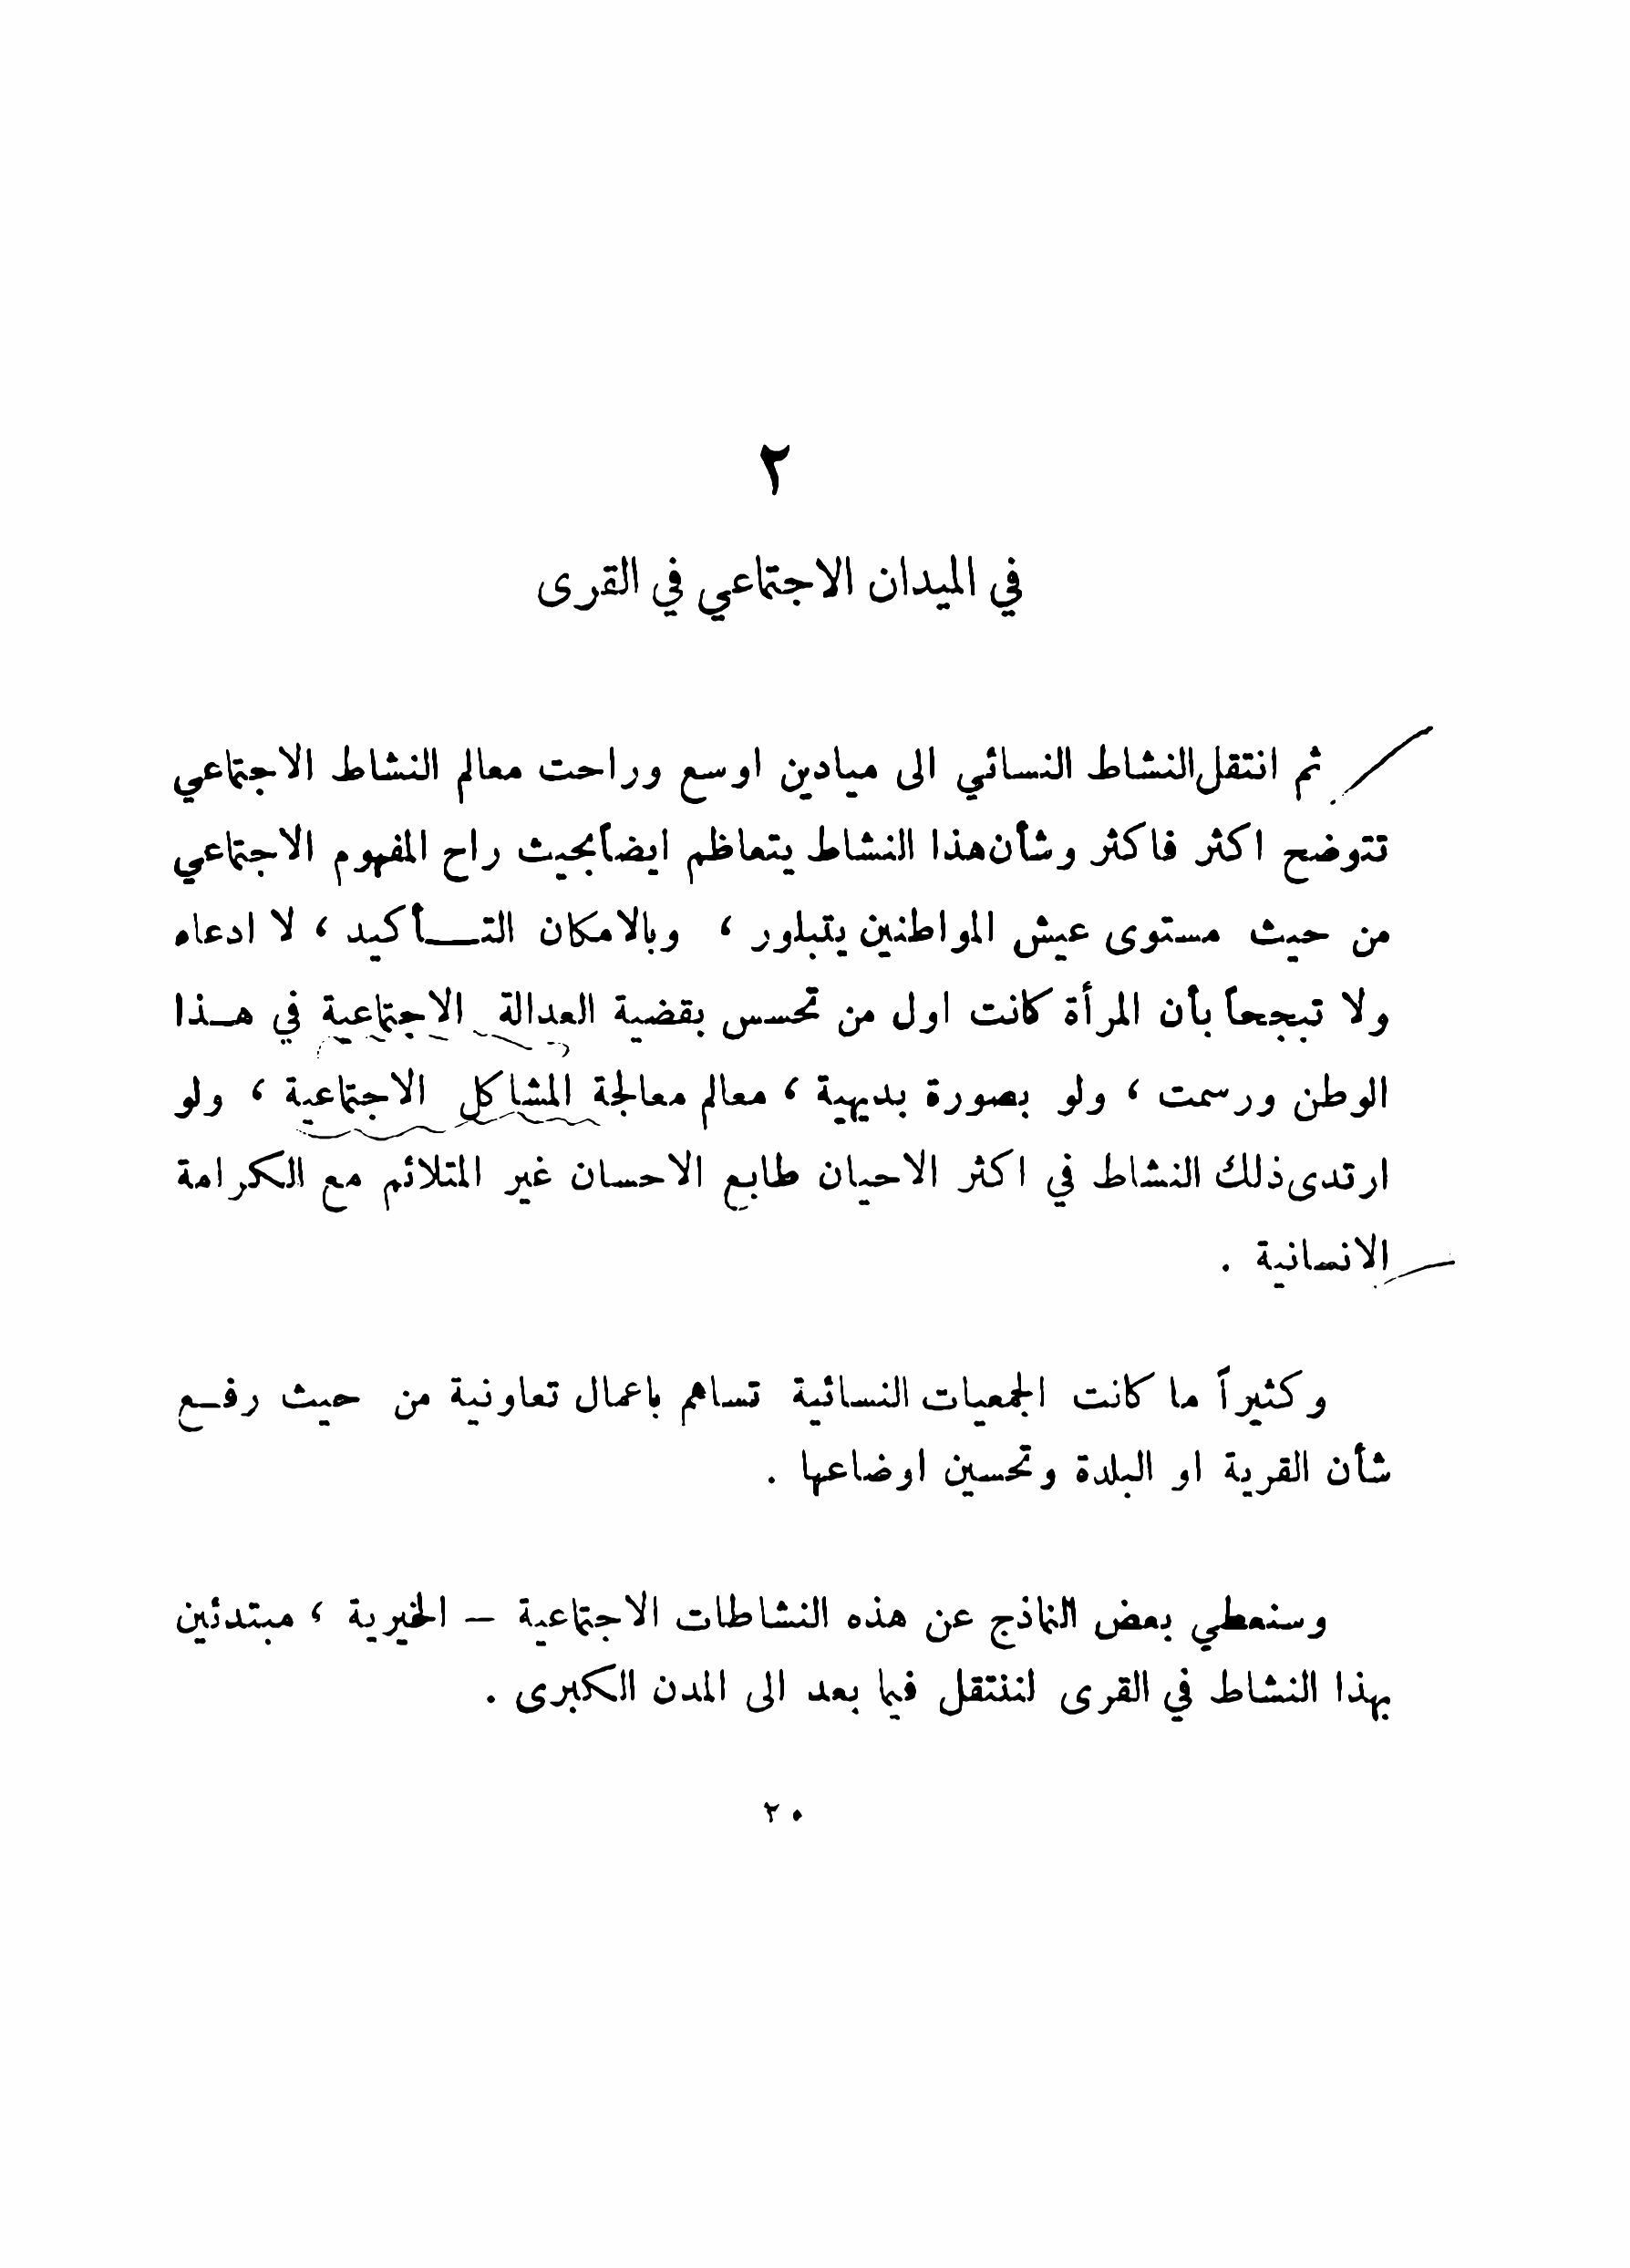 ٢
في الميدان الاجتماعي في القرى
ثم انتقل النشاط النسائي الى ميادين اوسع وراحت معالم النشاط الاجتماعي
تتوضح اكثر فاكثر وشأن هذا النشاط يتعاظم ايضاً بحيث راح المفهوم الاجتماعي
من حيث مستوى عيش المواطنين يتبلور ، وبالامكان التـــأكيد ، لا ادعاء
ولا تبجحاً بأن المرأة كانت اول من تحسس بقضية العدالة الاجتماعية في هـذا
الوطن ورسمت ، ولو بصورة بديهية ، معالم معالجة المشاكل الاجتماعية ، ولو
ارتدى ذلك النشاط في اكثر الاحيان طابع الاحسان غير المتلائم مع الكرامة
الانسانية .
وكثيراً ما كانت الجمعيات النسائية تساهم باعمال تعاونية من حيث رفـع
شأن القرية او البلدة وتحسين اوضاعها .
وسنعطي بعض النماذج عن هذه النشاطات الاجتماعية – الخيرية ، مبتدئين
بهذا النشاط في القرى لننتقل فيما بعد الى المدن الكبرى .
٢٠